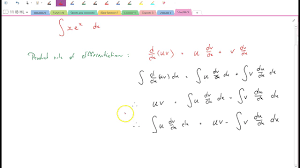 ∫ x eˣ dx
Product rule of differentiation: d/dx (uv) = u dv/dx + v du/dx
∫ d/dx (uv) dx = ∫ u dv/dx dx + ∫ v du/dx dx
∴ uv = ∫ u dv/dx dx + ∫ v du/dx dx
∴ ∫ u dv/dx dx = uv - ∫ v du/dx dx